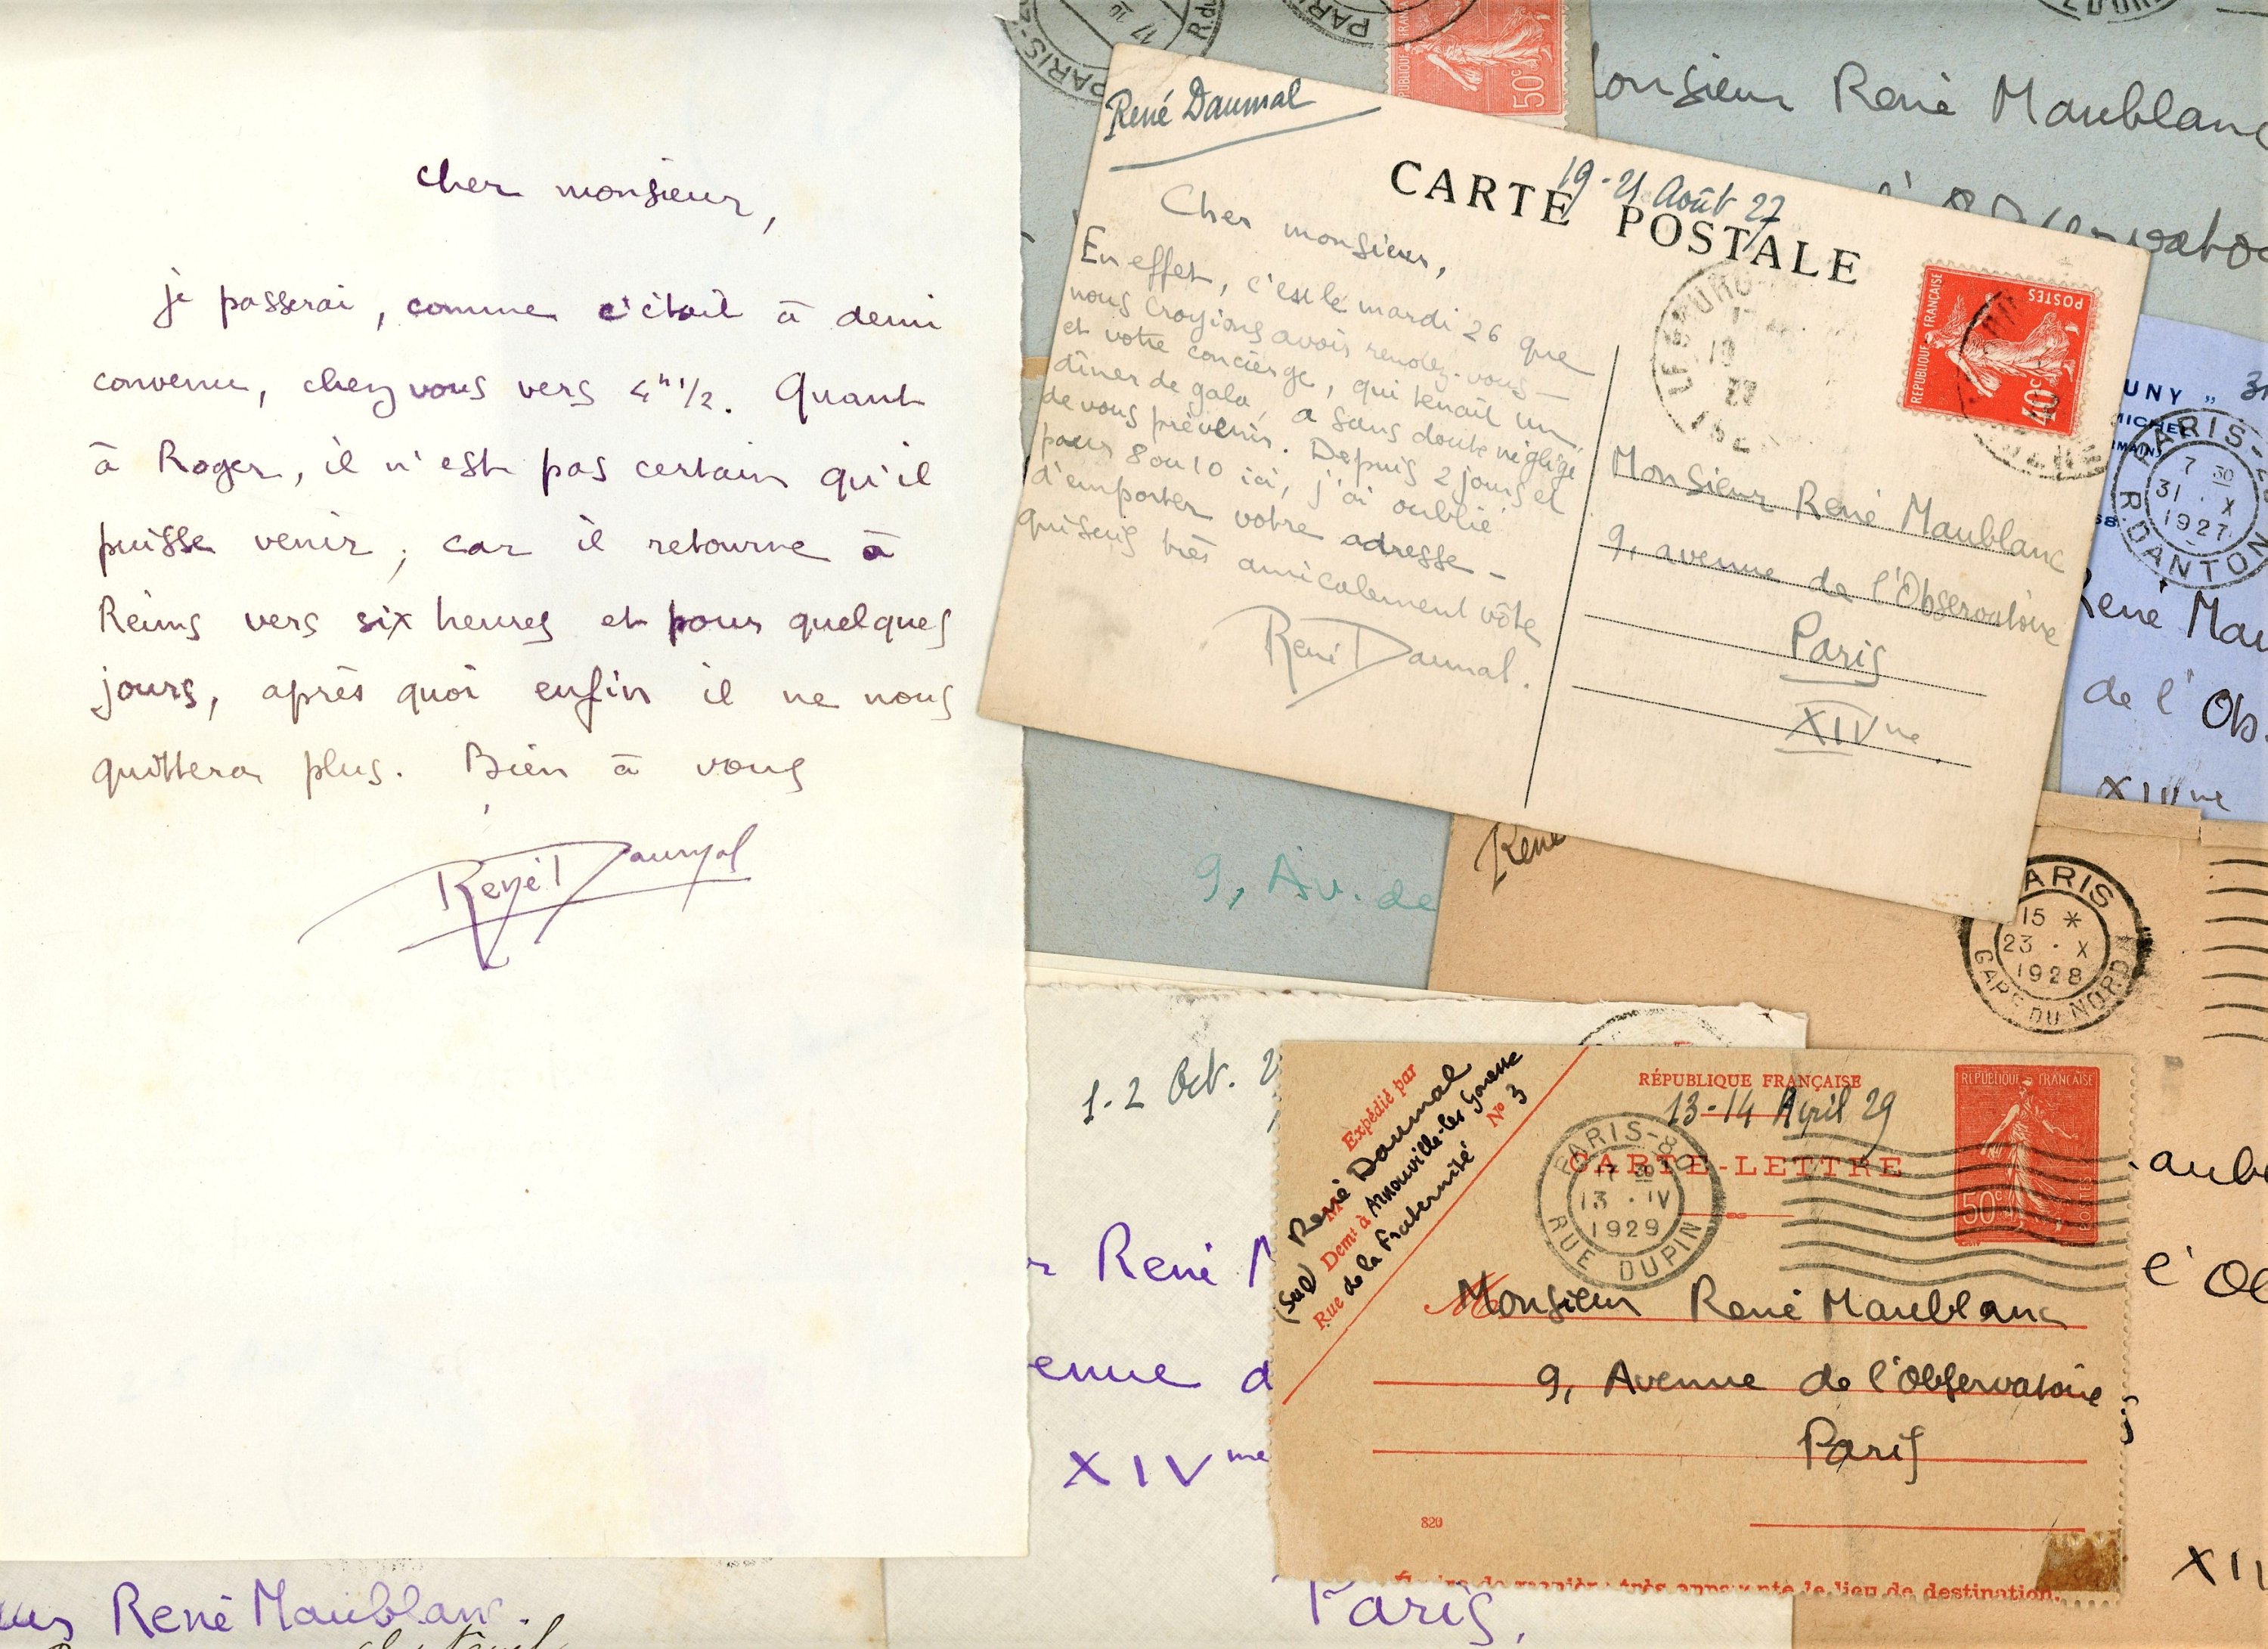 cher monsieur,
je passerai, comme c'était à demi
convenu, chez vous vers 4h 1/2. Quant
à Roger, il n'est pas certain qu'il
puisse venir, car il retourne à
Reims vers six heures et pour quelques
jours, après quoi enfin il ne nous
quittera plus. Bien à vous
René Daumal
René Maublanc.
PARIS
50c
Monsieur René Maublanc
René Daumal
19-21 Août 27
CARTE POSTALE
Cher monsieur,
En effet, c'est le mardi 26 que
nous croyions avoir rendez-vous —
et votre concierge, qui tenait un
dîner de gala, a sans doute négligé
de vous prévenir. Depuis 2 jours et
pour 8 ou 10 ici, j'ai oublié
d'emporter votre adresse —
qui suis très amicalement vôtre
René Daumal.
REPUBLIQUE FRANÇAISE
POSTES
40c
Monsieur René Maublanc
9, avenue de l'Observatoire
Paris
XIVme
UNY "
MICHEL
PARIS
7 30
31 . X
1927
R. DANTON
René Mau
de l'Ob
XIVme
9, Av. de
René
PARIS
15 *
23 . X
1928
GARE DU NORD
1-2 Oct. 2
René M
enue d
XIVme
Paris,
Expédié par
René Daumal
Demt à Arnouville-les-Gonesse
(S&O)
Rue de la Fraternité No 3
RÉPUBLIQUE FRANÇAISE
13-14 Avril 29
CARTE-LETTRE
PARIS-80
17 30
13 . IV
1929
RUE DUPIN
REPUBLIQUE FRANÇAISE
50c
POSTES
Monsieur René Maublanc
9, Avenue de l'Observatoire
Paris
820
le lieu de destination.
aubl
l'Ob
XIV